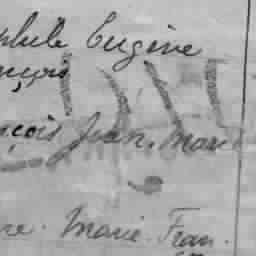 Eugène
nçois
nçois Jean. Mari
re. Marie. Fran.